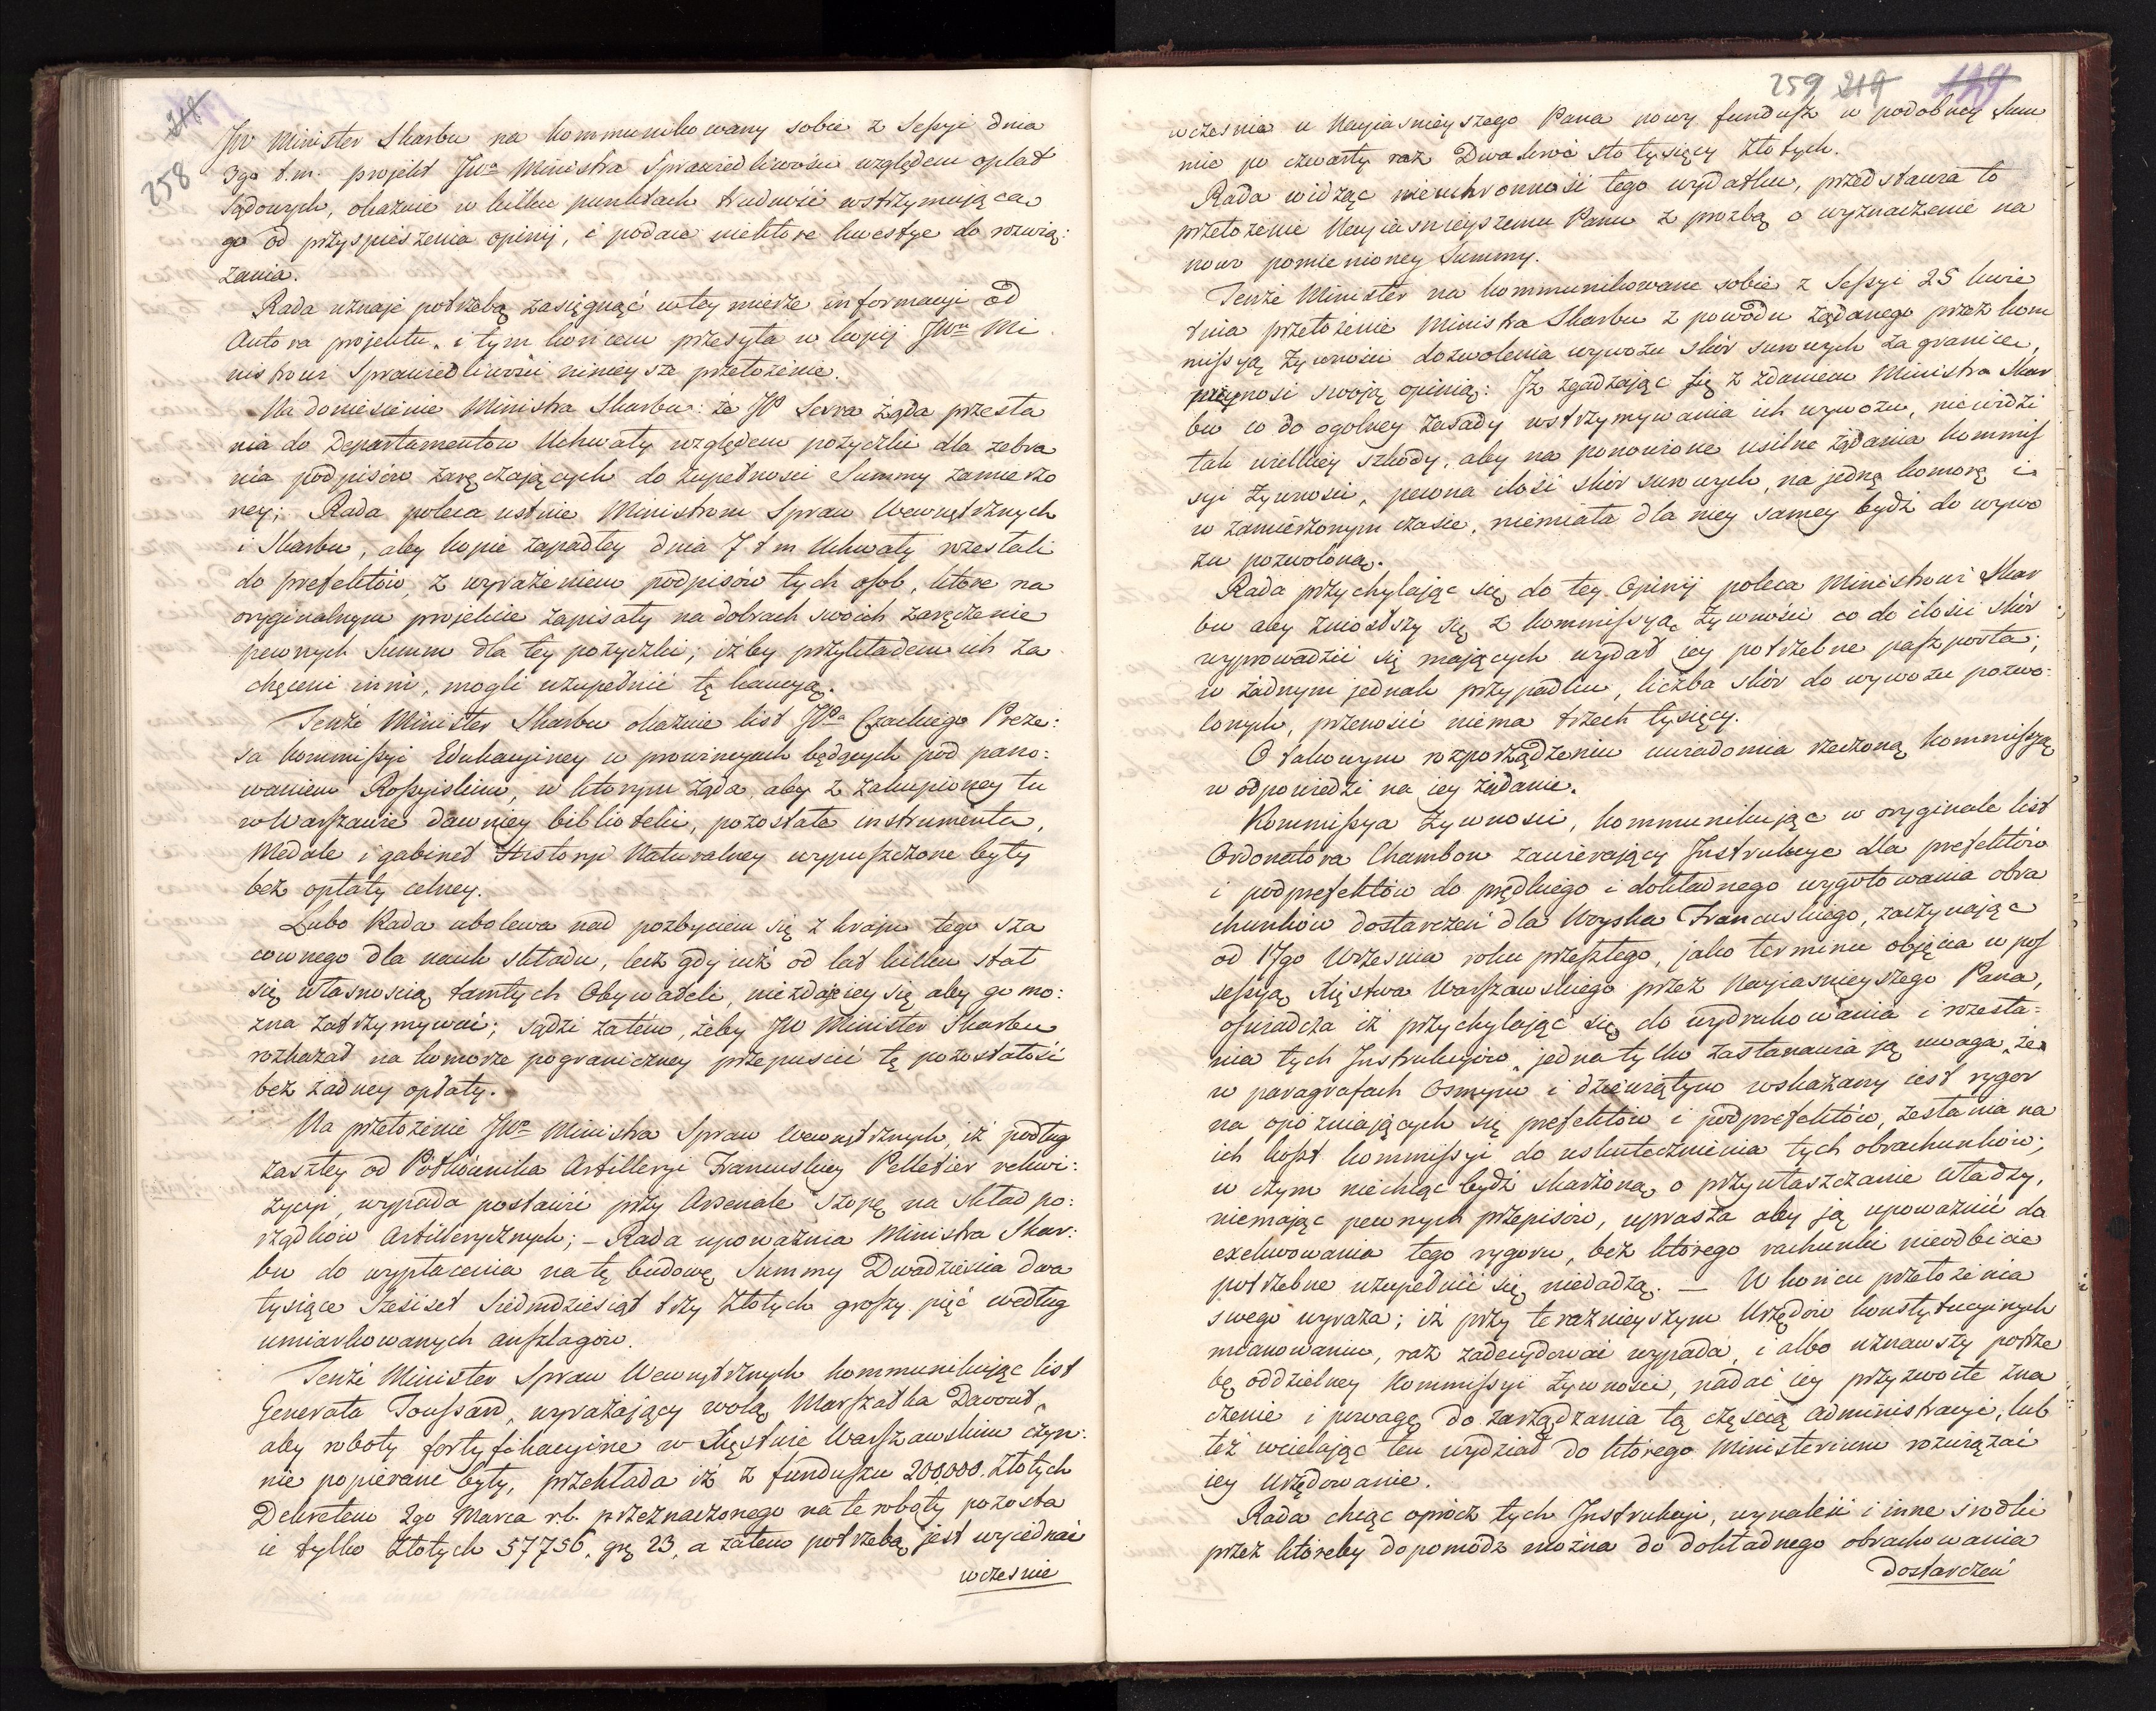 218
258
JW Minister Skarbu na kommunikowany sobie z Sessyi dnia
3go t.m. projekt JWo Ministra Sprawiedliwości względem opłat
Sądowych, okazuie w kilku punktach trudność wstrzymuiąca
go od przyspieszenia opinij, i podaie niektóre kwestye do rozwią:
zania.
Rada uznaje potrzebą zasięgnąć w tey mierze informacyi od
Autora projektu. i tym końcem przesyła w kopij JWmu Mi
nistrowi Sprawiedliwości ninieysze przełożenie.
Na doniesienie Ministra Skarbu: że JP Serra żąda przesła
nia do Departamentów Uchwały względem pożyczki dla zebra
nia podpisów zaręczających do zupełności Summy zamierzo
ney; Rada poleca ustnie Ministrom Spraw Wewnętrznych
i Skarbu, aby kopie zapadłey dnia 7 t m Uchwały rozesłali
do prefektów, z wyrażeniem podpisów tych osób, które na
oryginalnym projekcie zapisały na dobrach swoich zaręczenie
pewnych Summ dla tey pożyczki; iżby przykładem ich za
chęceni inni, mogli uzupełnić tę kaucyą.
Tenże Minister Skarbu okazuie list JPa Czackiego Preze:
sa Kommissyi Edukacyiney w prowincyach będących pod pano:
waniem Rossyiskim, w którym żąda, aby z zakupioney tu
w Warszawie dawniey biblioteki, pozostałe instrumenta,
Medale i gabinet Historyi Naturalney wypuszczone były
bez opłaty celney.
Lubo Rada ubolewa nad pozbyciem się z kraju tego sza
cownego dla nauk składu, lecz gdy iuż od lat kilku stał
się własnością tamtych Obywateli, niezdaie iey się, aby go mo:
żna zatrzymywać; sądzi zatém, żeby JW Minister Skarbu
rozkazał na komorze pograniczney przepuścić tę pozostałość
bez żadney opłaty.
Na przełożenie JWo Ministra Spraw Wewnętrznych, iż podług
zaszłey od Półkownika Artilleryi Francuskiey Pelletier rekwi:
zycyi, wypada postawić przy Arsenale Szopę na skład po:
rządków Artillerycznych; – Rada upoważnia Ministra Skar:
bu do wypłacenia na tę budowę Summy Dwadzieścia dwa
tysiące Sześćset Siedmdziesiąt trzy Złotych groszy pięć według
umiarkowanych anszlagów.
Tenże Minister Spraw Wewnętrznych kommunikując list
Generała Toussard, wyrażający wolą Marszałka Davout,
aby roboty fortyfikacyine w Xięstwie Warszawskim czyn:
nie popierane były, przekłada iż z funduszu 200000. złotych
Dekretem 2go Marca r.b. przeznaczonego na te roboty pozosta
ie tylko złotych 57756, grę 23, a zatem potrzebą jest wyiednać
wcześnie
259 219 129
wcześnia u Nayiaśnieyszego Pana nowy fundusz w podobney Sum
mie po czwarty raz Dwakroć sto tysięcy złotych.
Rada widząc nieuchronność tego wydatku, przedstawia to
przełożenie Nayiaśnieyszemu Panu z prozbą o wyznaczenie na
nowo pomienioney Summy.
Tenże Minister na kommunikowane sobie z Sessyi 25 kwie
tnia przełożenie Ministra Skarbu z powodu żądanego przez kom
missyą żywności dozwolenia wywozu skór surowych za granicę,
przynosi swoją opinią: Iż zgadzając się z zdaniem Ministra Skar
bu co do ogólney zasady wstrzymywania ich wywozu, niewidzi
tak wielkiey szkody, aby na ponowione usilne żądania kommis
syi żywności, pewna ilość skór surowych, na jedną komorę i
w zamierzonym czasie, niemiała dla niey samey bydź do wywo
zu pozwoloną.
Rada przychylając się do tey Opinij poleca Ministrowi Skar
bu aby zniósłszy się z kommissyą żywności co do ilości skór
wyprowadzić się mających wydał iey potrzebne paszporta;
w żadnym jednak przypadku, liczba skór do wywozu pozwo:
lonych, przenosić niema trzech tysięcy.
O takowym rozporządzeniu uwiadomia rzeczoną Kommissyą
w odpowiedzi na iey żądanie.
Kommissya żywności, kommunikując w oryginale list
Ordonatora Chambon zawierający Instrukcye dla prefektów
i podprefektów do prędkiego i dokładnego wygotowania obra
chunków dostarczeń dla Woyska Francuskiego, zaczynając
od 17go Września roku przeszłego, jako terminu objęcia w pos
sessyą Xięstwa Warszawskiego przez Nayiaśnieyszego Pana,
oświadcza iż przychylając się do wydrukowania i rozesła:
nia tych Instrukcyów, jedna tylko zastanawia ją uwaga, że
w paragrafach Osmym i dziewiątym wskazany iest rygor
na opóźniających się prefektów i podprefektów, zesłania na
ich koszt kommissyi do uskutecznienia tych obrachunków;
w czym niechcąc bydź skarżoną, o przywłaszczanie władzy,
niemając pewnych przepisów, uprasza aby ją upoważnić do
exekwowania tego rygoru, bez którego rachunki nieodbicie
potrzebne uzupełnić się niedadzą. — W końcu przełożenia
swego wyraża; iż przy teraźnieyszym Urzędów konstytucyinych
mianowaniu, raz zadecydować wypada, i albo uznawszy potrze
bę oddzielney Kommissyi żywności, nadać iey przyzwoite zna
czenie i powagę do zarządzania tą częścią administracyi, lub
też wcielając ten wydział do którego Ministerium rozwiązać
iey Urzędowanie.
Rada chcąc oprócz tych Instrukcyi, wynaleść i inne środki
przez któreby dopomódz można do dokładnego obrachowania
dostarczeń